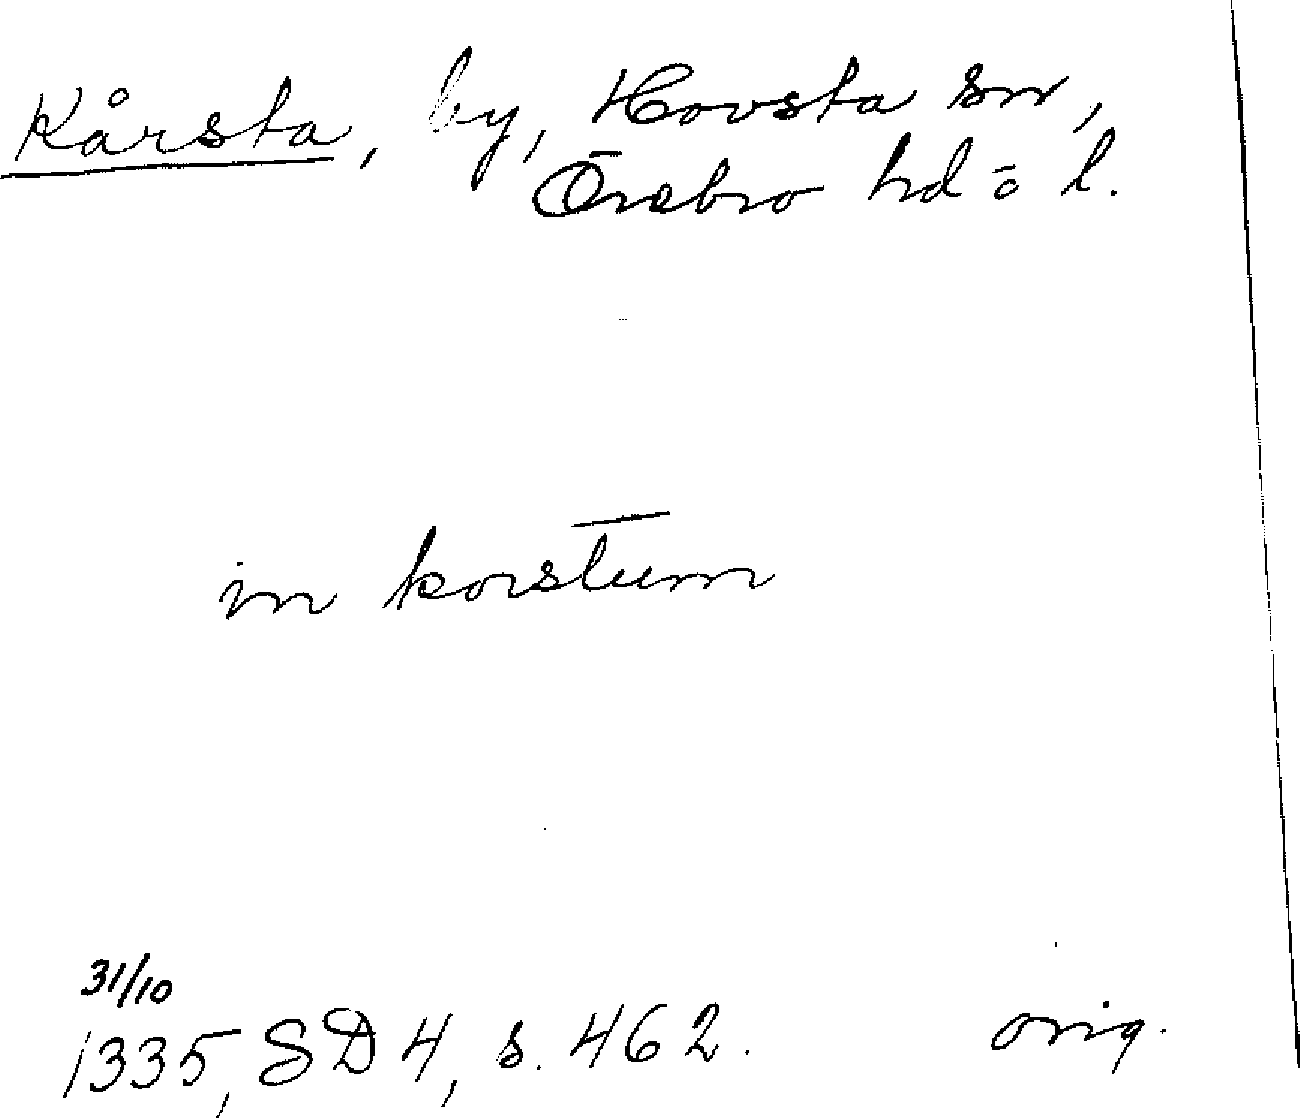 Kårsta, by, Hovsta sn,
Örebro hd o l.
in korstum
31/10
1335, SD 4, s. 462. orig.